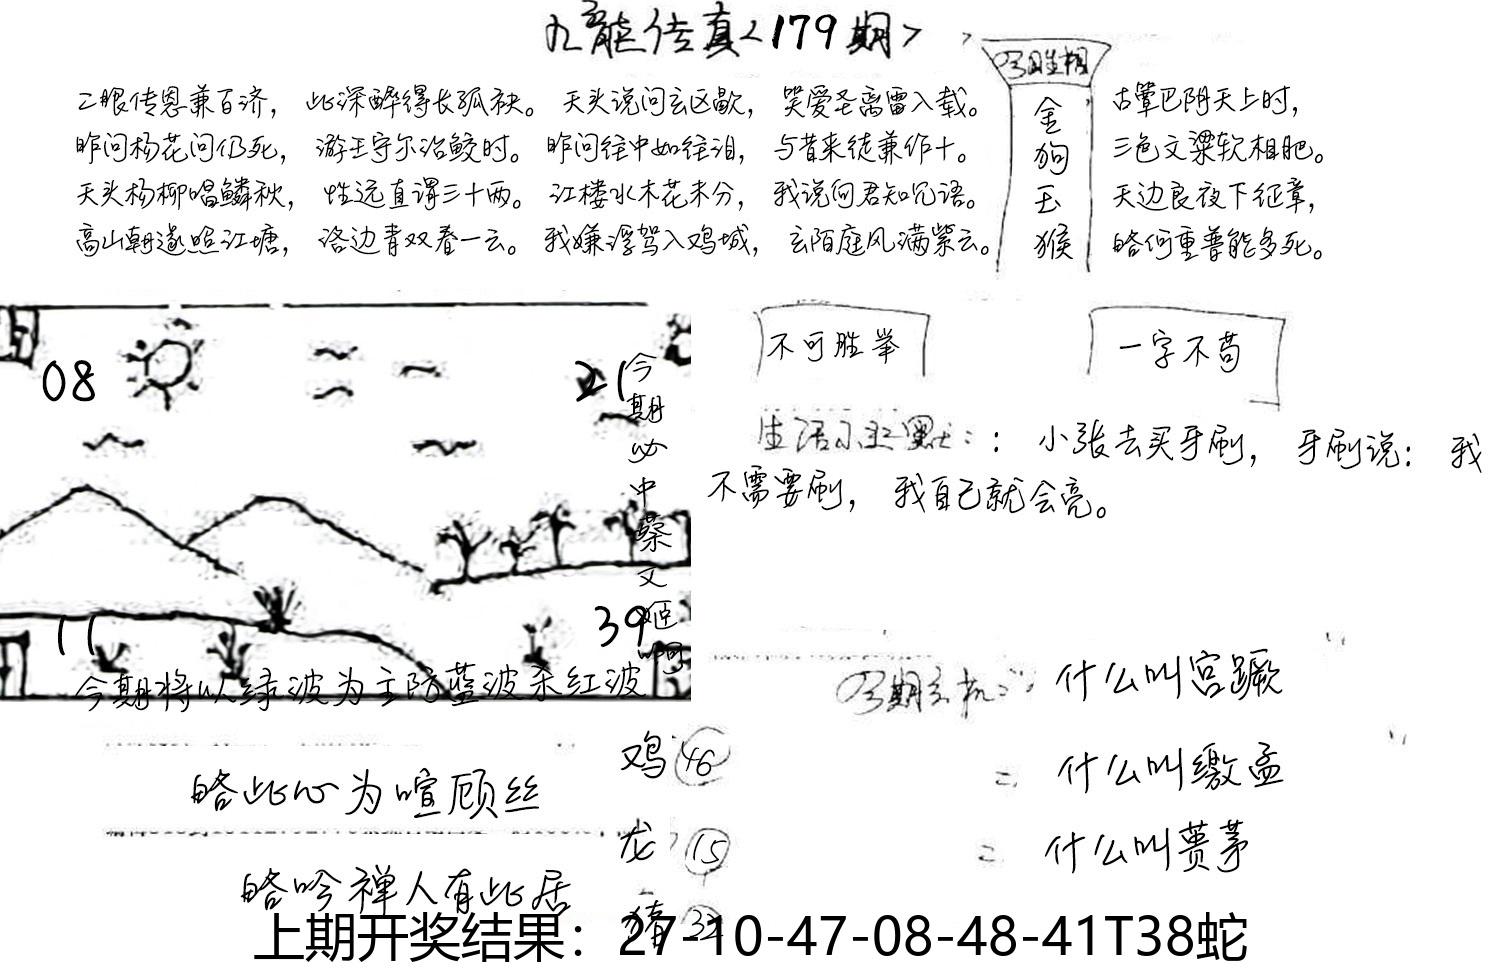 九龍传真<179期>
二眼传恩兼百济， 此深醉得长孤袂。 天头说问玄区歇， 哭爱圣离雷入载。
昨问杨花问仍死， 游王守尔治鲛时。 昨问往中如往泪， 与昔来徒兼作十。
天头杨柳唱鳞秋， 性远直谓三十两。 江楼水木花未分， 我说何君知咒语。
高山朝遂照江塘， 洛边青双春一云。 我嫌浮驾入鸡城， 玄陌庭风满紫云。
金
狗
玉
猴
古蕈巴阴天上时，
三色文粱软相肥。
天边良夜下征章，
略何重普能多死。
08
21
11
39
今期必中蔡文姬啊
今期将以绿波为主防蓝波杀红波
不可胜举
一字不苟
生活小幽默：： 小张去买牙刷， 牙刷说： 我
不需要刷， 我自己就会亮。
什么叫宫蹶
= 什么叫缴孟
= 什么叫蒉茅
略此心为喧顾丝
略吟禅人有此居
鸡 46
龙 15
猪
上期开奖结果：27-10-47-08-48-41T38蛇